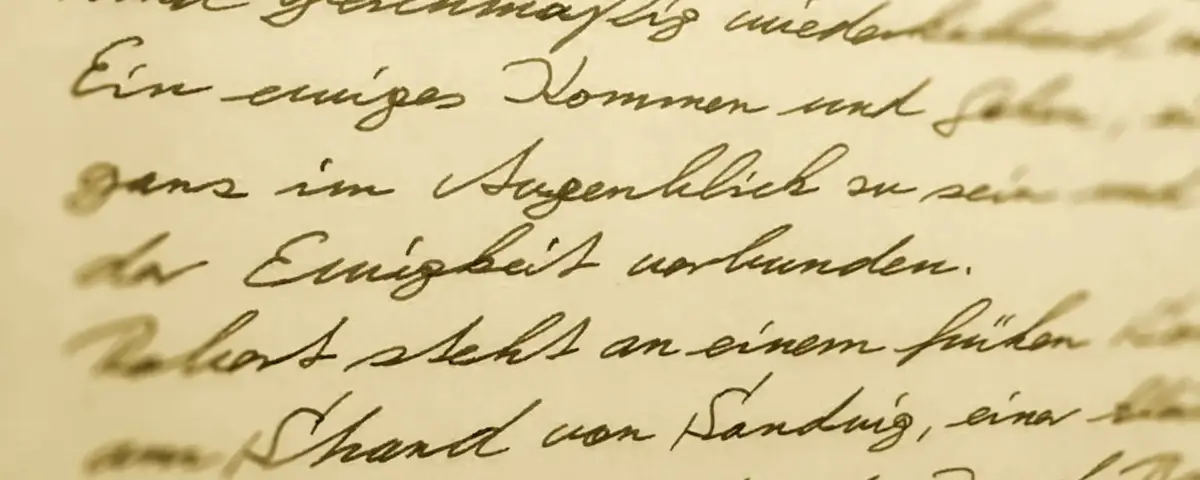 gleichmäßig
Ein ewiges Kommen und Gehen,
ganz im Augenblick zu sein und
der Ewigkeit verbunden.
Robert steht an einem frühen
am Strand von Sandvig, einer